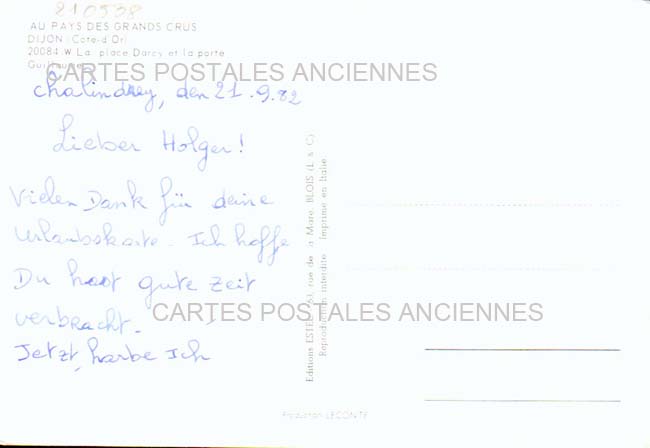 210538
AU PAYS DES GRANDS CRUS
DIJON (Côte-d'Or)
20084 W La place Darcy et la porte
Guillaume
CARTES POSTALES ANCIENNES
Chalindrey, den 21.9.82
Lieber Holger!
Vielen Dank für deine
Urlaubskarte. Ich hoffe
Du hast gute Zeit
verbracht.
CARTES POSTALES ANCIENNES
Jetzt, harbe Ich
Editions ESTEL rue de la Mare BLOIS (L. & C.)
Reproduction interdite Imprimé en Italie
Production LECONTE